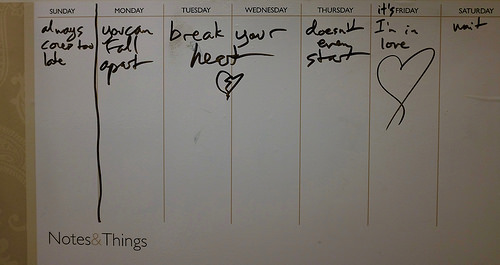 SUNDAY MONDAY TUESDAY WEDNESDAY THURSDAY it's FRIDAY SATURDAY
always
comes too
late
you can
fall
apart
break your
heart
doesn't
even
start
I'm in
love
wait
Notes&Things